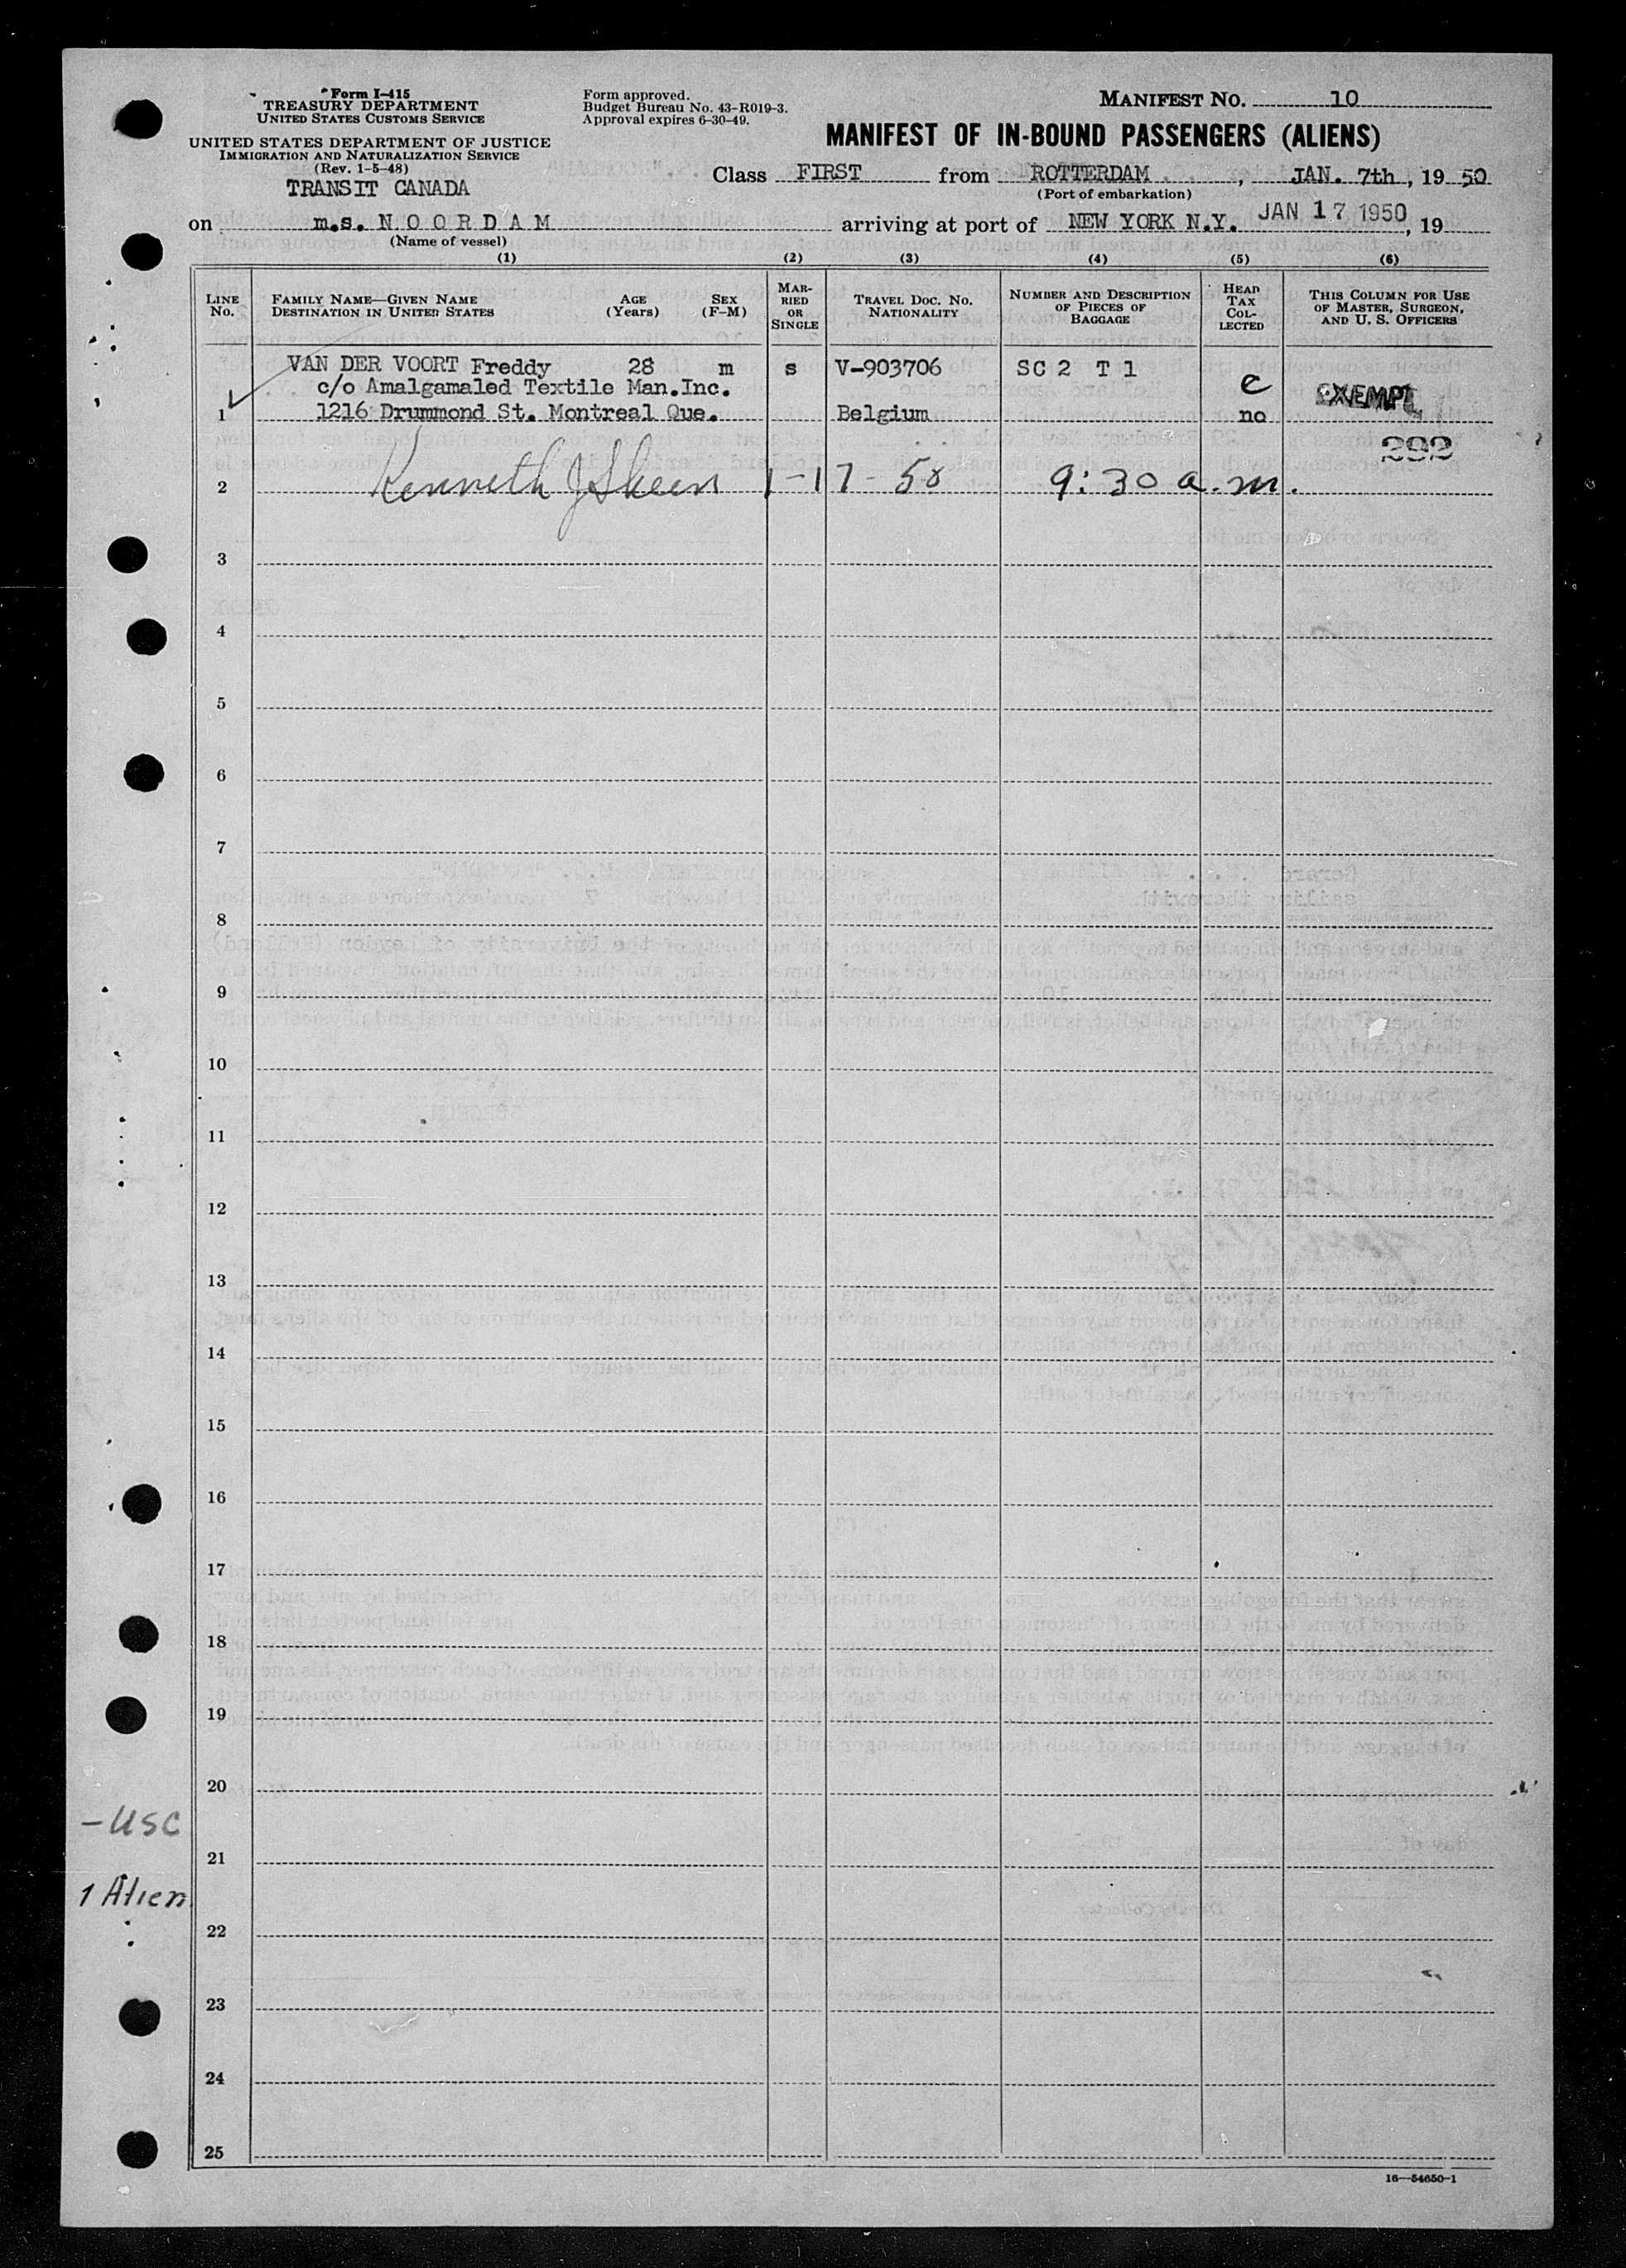 Form I-415
TREASURY DEPARTMENT
UNITED STATES CUSTOMS SERVICE
UNITED STATES DEPARTMENT OF JUSTICE
IMMIGRATION AND NATURALIZATION SERVICE
(Rev. 1-5-48)
TRANSIT CANADA
Form approved.
Budget Bureau No. 43-R019-3.
Approval expires 6-30-49.
MANIFEST NO. 10
MANIFEST OF IN-BOUND PASSENGERS (ALIENS)
Class FIRST from ROTTERDAM, JAN. 7th, 19 50
(Port of embarkation)
on m.s. N O O R D A M arriving at port of NEW YORK N.Y. JAN 17 1950, 19
(Name of vessel)
(1) (2) (3) (4) (5) (6)
LINE No. FAMILY NAME—GIVEN NAME DESTINATION IN UNITED STATES AGE (Years) SEX (F-M) MARRIED OR SINGLE TRAVEL DOC. NO. NATIONALITY NUMBER AND DESCRIPTION OF PIECES OF BAGGAGE HEAD TAX COLLECTED THIS COLUMN FOR USE OF MASTER, SURGEON, AND U. S. OFFICERS
VAN DER VOORT Freddy 28 m s V-903706 SC 2 T 1
c/o Amalgamaled Textile Man.Inc. c EXEMPT
1 1216 Drummond St. Montreal Que. Belgium no
292
2 Kenneth J Skeen 1-17-50 9:30 a.m.
3
4
5
6
7
8
9
10
11
12
13
14
15
16
17
18
19
20
- USC
21
1 Alien
22
23
24
25
16—54650-1